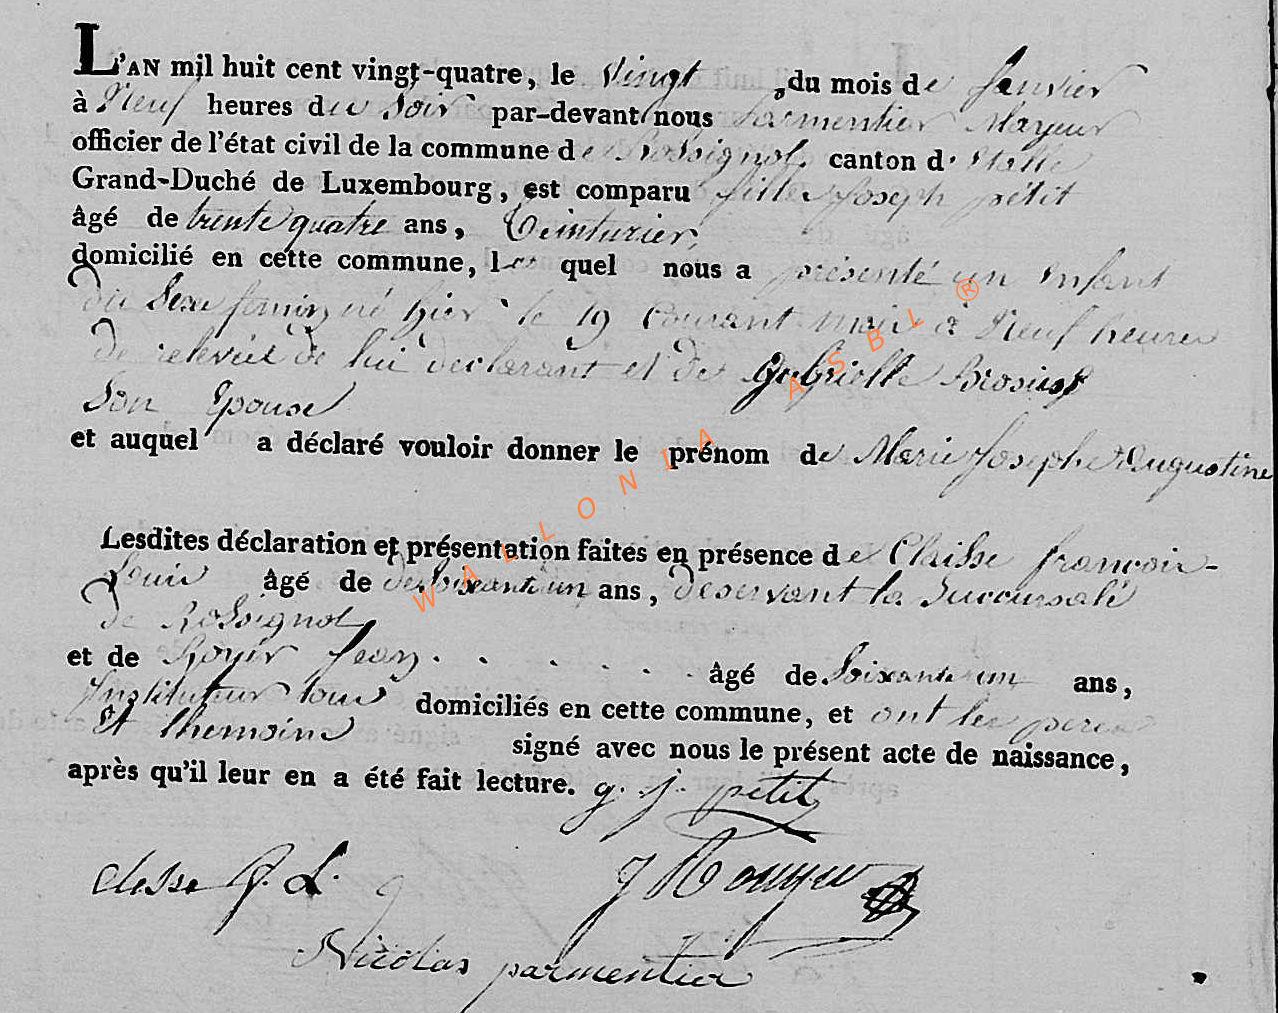 L'AN mil huit cent vingt-quatre, le Vingt du mois de Janvier
à Neuf heures du Soir par-devant nous parmentier Mayeur
officier de l'état civil de la commune de Rossignol, canton d'Etalle
Grand-Duché de Luxembourg, est comparu Joseph pétit
âgé de trente quatre ans, Teinturier,
domicilié en cette commune, lequel nous a présenté un Enfant
du Sexe feminin né hier le 19 Courant mois à Neuf heures
de relevée de lui declarant et de Gabrielle Brosius
Son Epouse
et auquel a déclaré vouloir donner le prénom de Marie Josephe Augustine
Lesdites déclaration et présentation faites en présence de Claisse francois-
Louis âgé de soixante un ans, deservant la Succursale
de Rossignol
et de Royer Jean . . . . . . âgé de Soixante un ans,
Instituteur tous domiciliés en cette commune, et ont les peres
et themoins signé avec nous le présent acte de naissance,
après qu'il leur en a été fait lecture. g. j. petit
clesse f. L. J Rouyer
Nicolas parmentier
WALLONIA ASBL ®